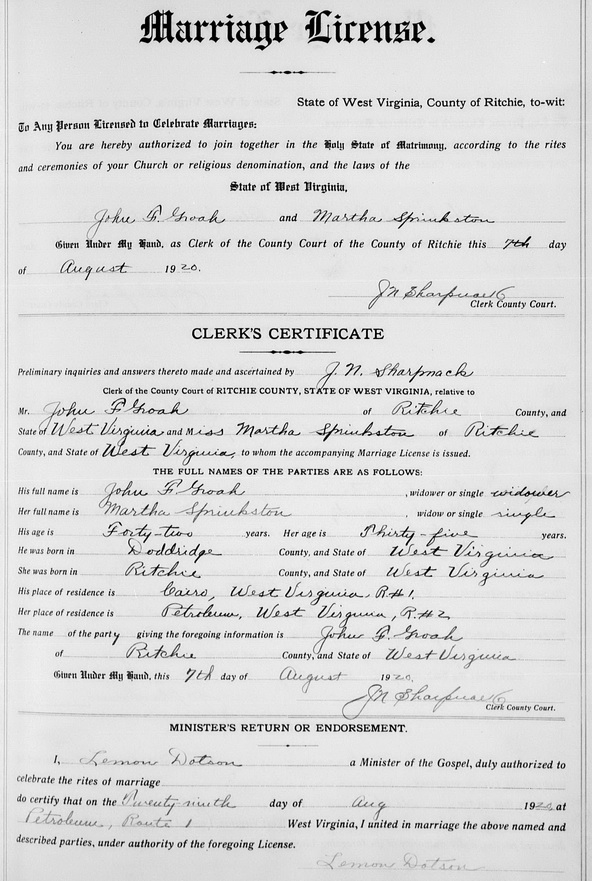 Marriage License.
State of West Virginia, County of Ritchie, to-wit:
To Any Person Licensed to Celebrate Marriages:
You are hereby authorized to join together in the Holy State of Matrimony, according to the rites
and ceremonies of your Church or religious denomination, and the laws of the
State of West Virginia,
John F. Groah and Martha Sprinkston
Given Under My Hand, as Clerk of the County Court of the County of Ritchie this 7th day
of August 1920.
J N Sharpnack
Clerk County Court.
CLERK'S CERTIFICATE
Preliminary inquiries and answers thereto made and ascertained by J. N. Sharpnack
Clerk of the County Court of RITCHIE COUNTY, STATE OF WEST VIRGINIA, relative to
Mr. John F Groah of Ritchie County, and
State of West Virginia and Miss Martha Sprinkston of Ritchie
County, and State of West Virginia, to whom the accompanying Marriage License is issued.
THE FULL NAMES OF THE PARTIES ARE AS FOLLOWS:
His full name is John F Groah, widower or single widower
Her full name is Martha Sprinkston, widow or single single
His age is Forty-two years. Her age is Thirty-five years.
He was born in Doddridge County, and State of West Virginia
She was born in Ritchie County, and State of West Virginia
His place of residence is Cairo, West Virginia, R#1,
Her place of residence is Petroleum, West Virginia, R.#2,
The name of the party giving the foregoing information is John F. Groah
of Ritchie County, and State of West Virginia
Given Under My Hand, this 7th day of August 1920.
J N Sharpnack
Clerk County Court.
MINISTER'S RETURN OR ENDORSEMENT.
I, Lemon Dotson a Minister of the Gospel, duly authorized to
celebrate the rites of marriage
do certify that on the Twenty ninth day of Aug 1920 at
Petroleum, Route 1 West Virginia, I united in marriage the above named and
described parties, under authority of the foregoing License.
Lemon Dotson